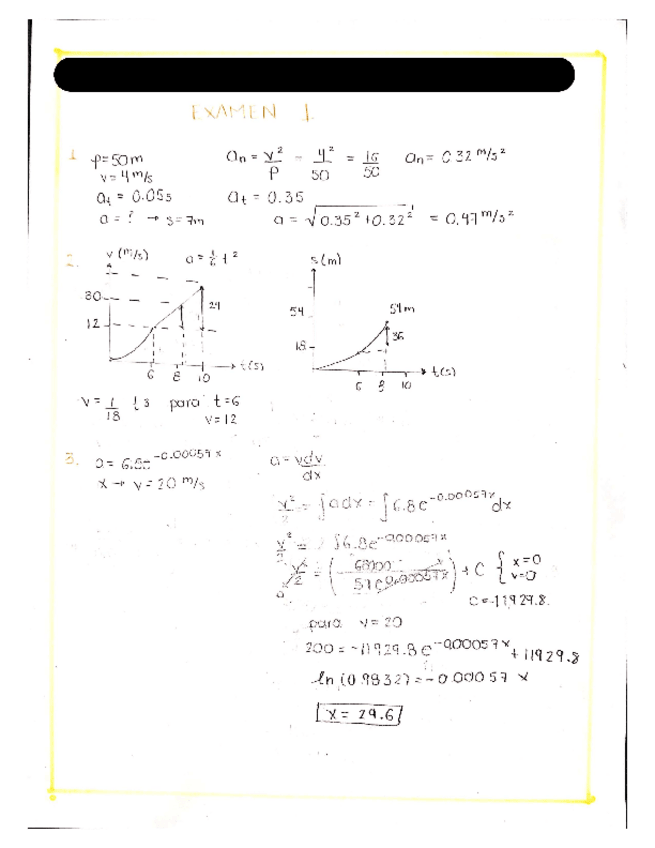 EXAMEN 1.
1. ρ=50m
v=4m/s
aₜ = 0.05s
a = ? → s=7m
aₙ = v²/ρ = 4²/50 = 16/50 aₙ= 0.32 m/s²
aₜ = 0.35
a = √0.35²+0.32² = 0.47 m/s²
2. v (m/s) a = 1/6 t²
30
12
24
6 8 10 t(s)
v = 1/18 t3 para t=6
v=12
s(m)
54 54m
36
18
6 8 10 t(s)
3. a= 6.8e^-0.00057x
x → v=20 m/s
a = vdv/dx
v²/2 = ∫adx = ∫6.8e^-0.00057x dx
v²/2 = ∫6.8e^-0.00057x
v²/2 = ( 68000/57e^0.00057x ) + C { x=0
v=0
C=-11929.8.
para v=20
200 = -11929.8e^-0.00057x +11929.8
ln(0.9832)=-0.00057 x
x = 29.6